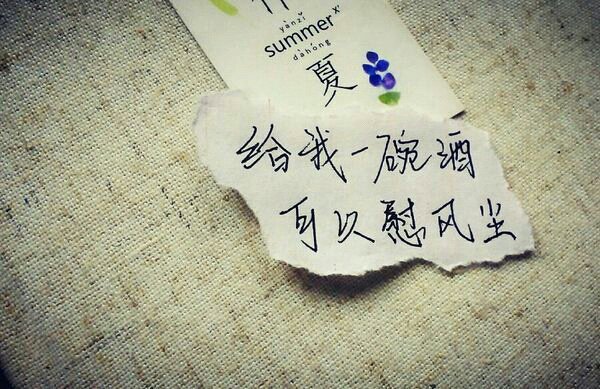 yànzǐ
summer
dàhóng
夏
给我一碗酒
可以慰风尘